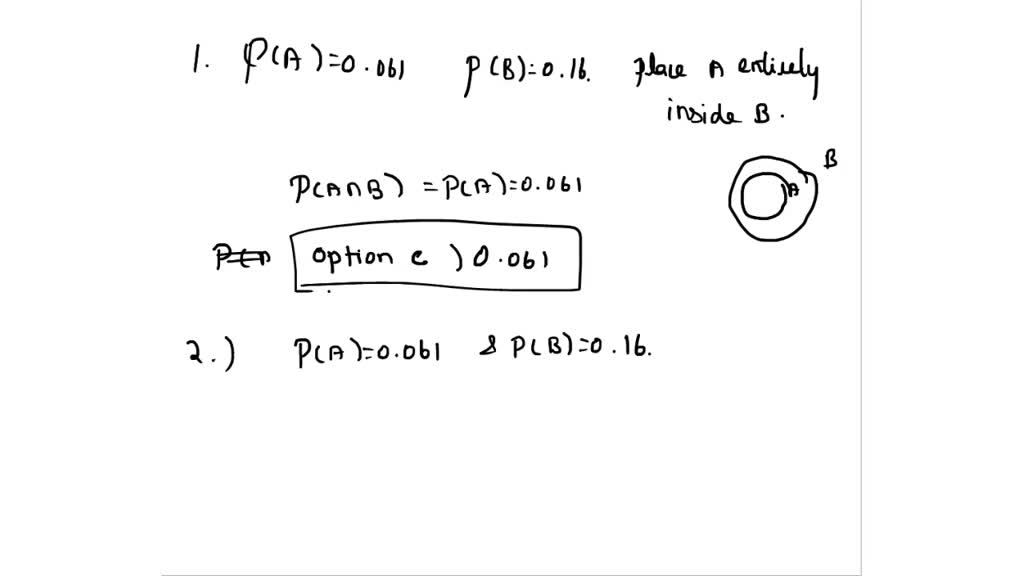 1. P(A)=0.061 P(B)=0.16. place A entirely
inside B.
B
A
P(A∩B) = P(A)=0.061
option c ) 0.061
2.) P(A)=0.061 & P(B)=0.16.